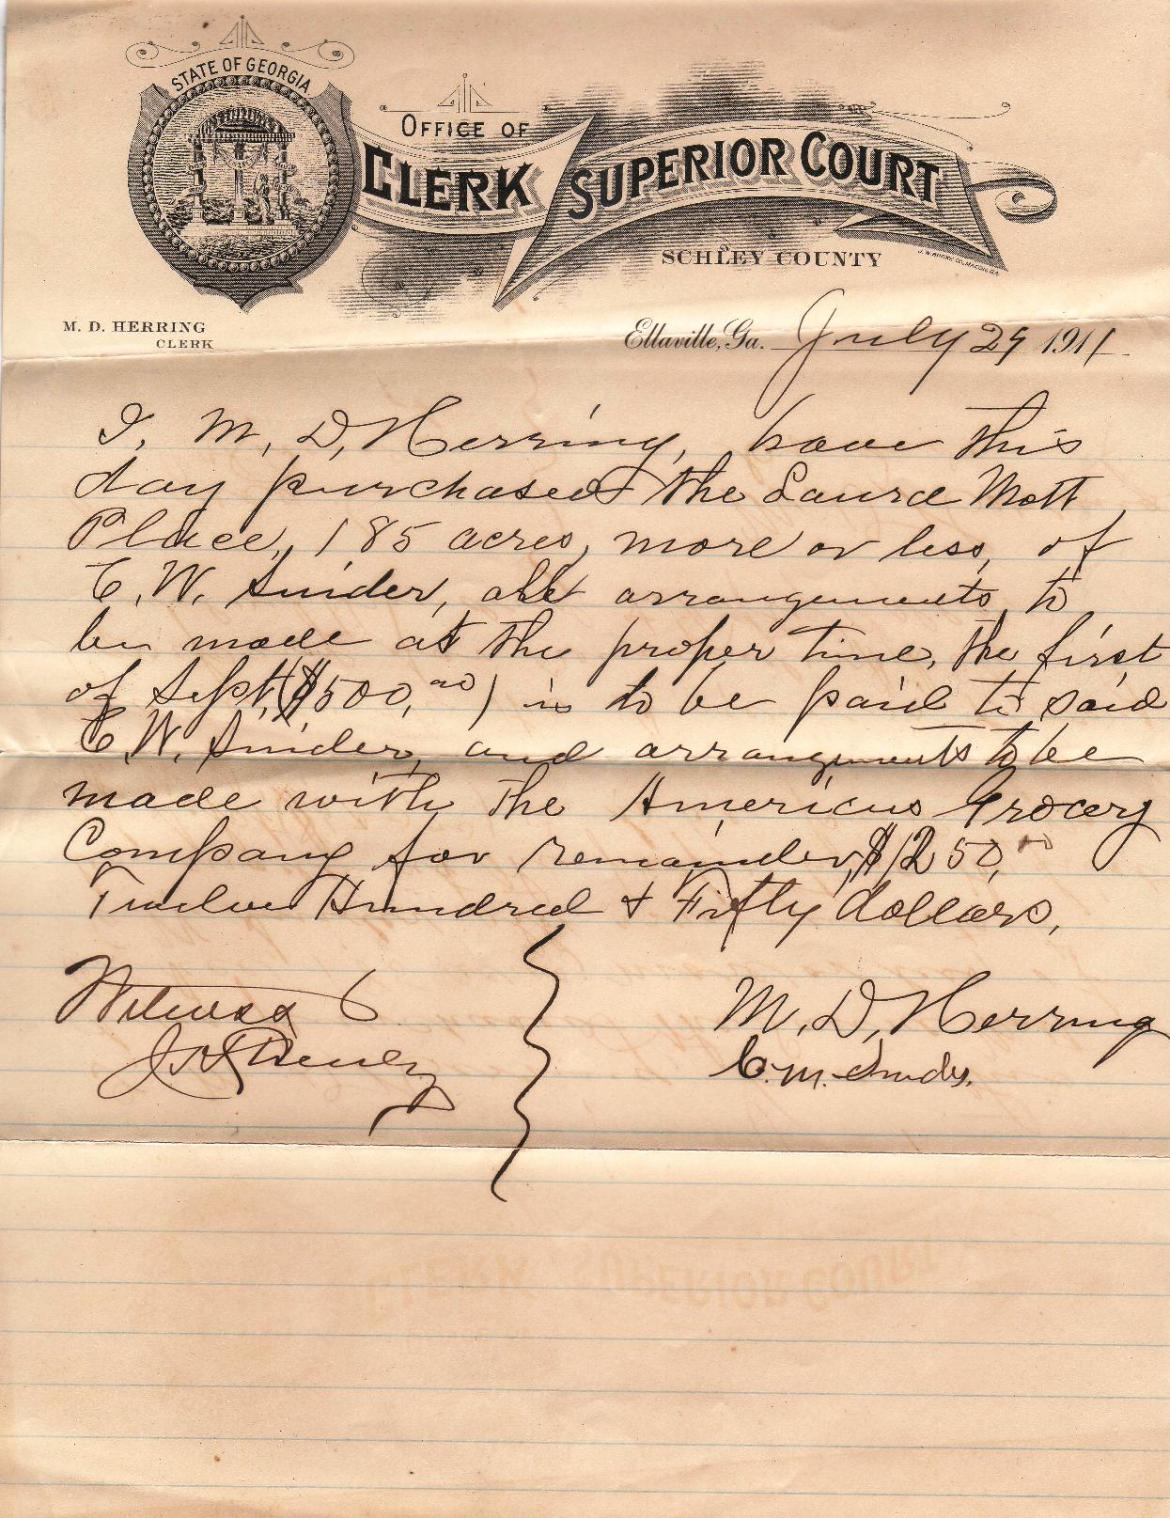 STATE OF GEORGIA
OFFICE OF
CLERK SUPERIOR COURT
SCHLEY COUNTY
M. D. HERRING
CLERK
Ellaville, Ga. July 29 1911
I, M, D, Herring, have this
day purchased the Laura Mott
Place, 185 acres, more or less, of
C. W. Snider, all arrangements to
be made at the proper time, the first
of Sept, ($500,00) is to be paid to said
C. W. Snider, and arrangements to be
made with the Americus Grocery
Company for remainder, $1250,00
Twelve Hundred & Fifty dollars,
Witness
M, D, Herring
C. M. Snider.